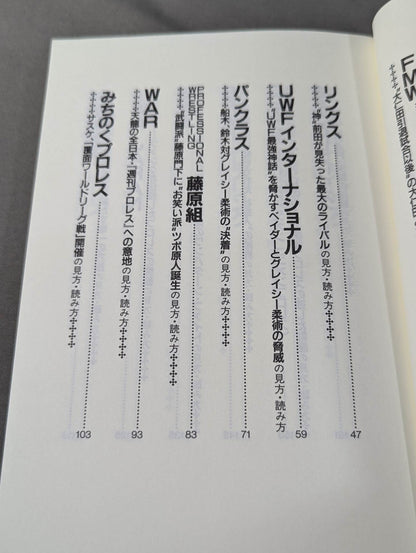 FMW
✢✢✢✢大仁田引退試合以後"の大仁田
リングス
✢✢✢✢"神"前田が見失った最大のライバルの見方・読み方✢✢✢✢
47
UWFインターナショナル
✢✢✢✢"UWF最強神話"を脅かすベイダーとグレイシー柔術の脅威の見方・読み方
59
パンクラス
✢✢✢✢船木、鈴木対グレイシー柔術の"決着"の見方・読み方✢✢✢✢
71
PROFESSIONAL WRESTLING 藤原組
✢✢✢✢"武闘派"藤原門下に"お笑い派"ツボ原人誕生の見方・読み方✢✢✢✢
83
WAR
✢✢✢✢天龍の全日本・『週刊プロレス』への意地の見方・読み方✢✢✢✢
93
みちのくプロレス
✢✢✢✢サスケ、「覆面ワールドリーグ戦」開催の見方・読み方✢✢✢✢
103